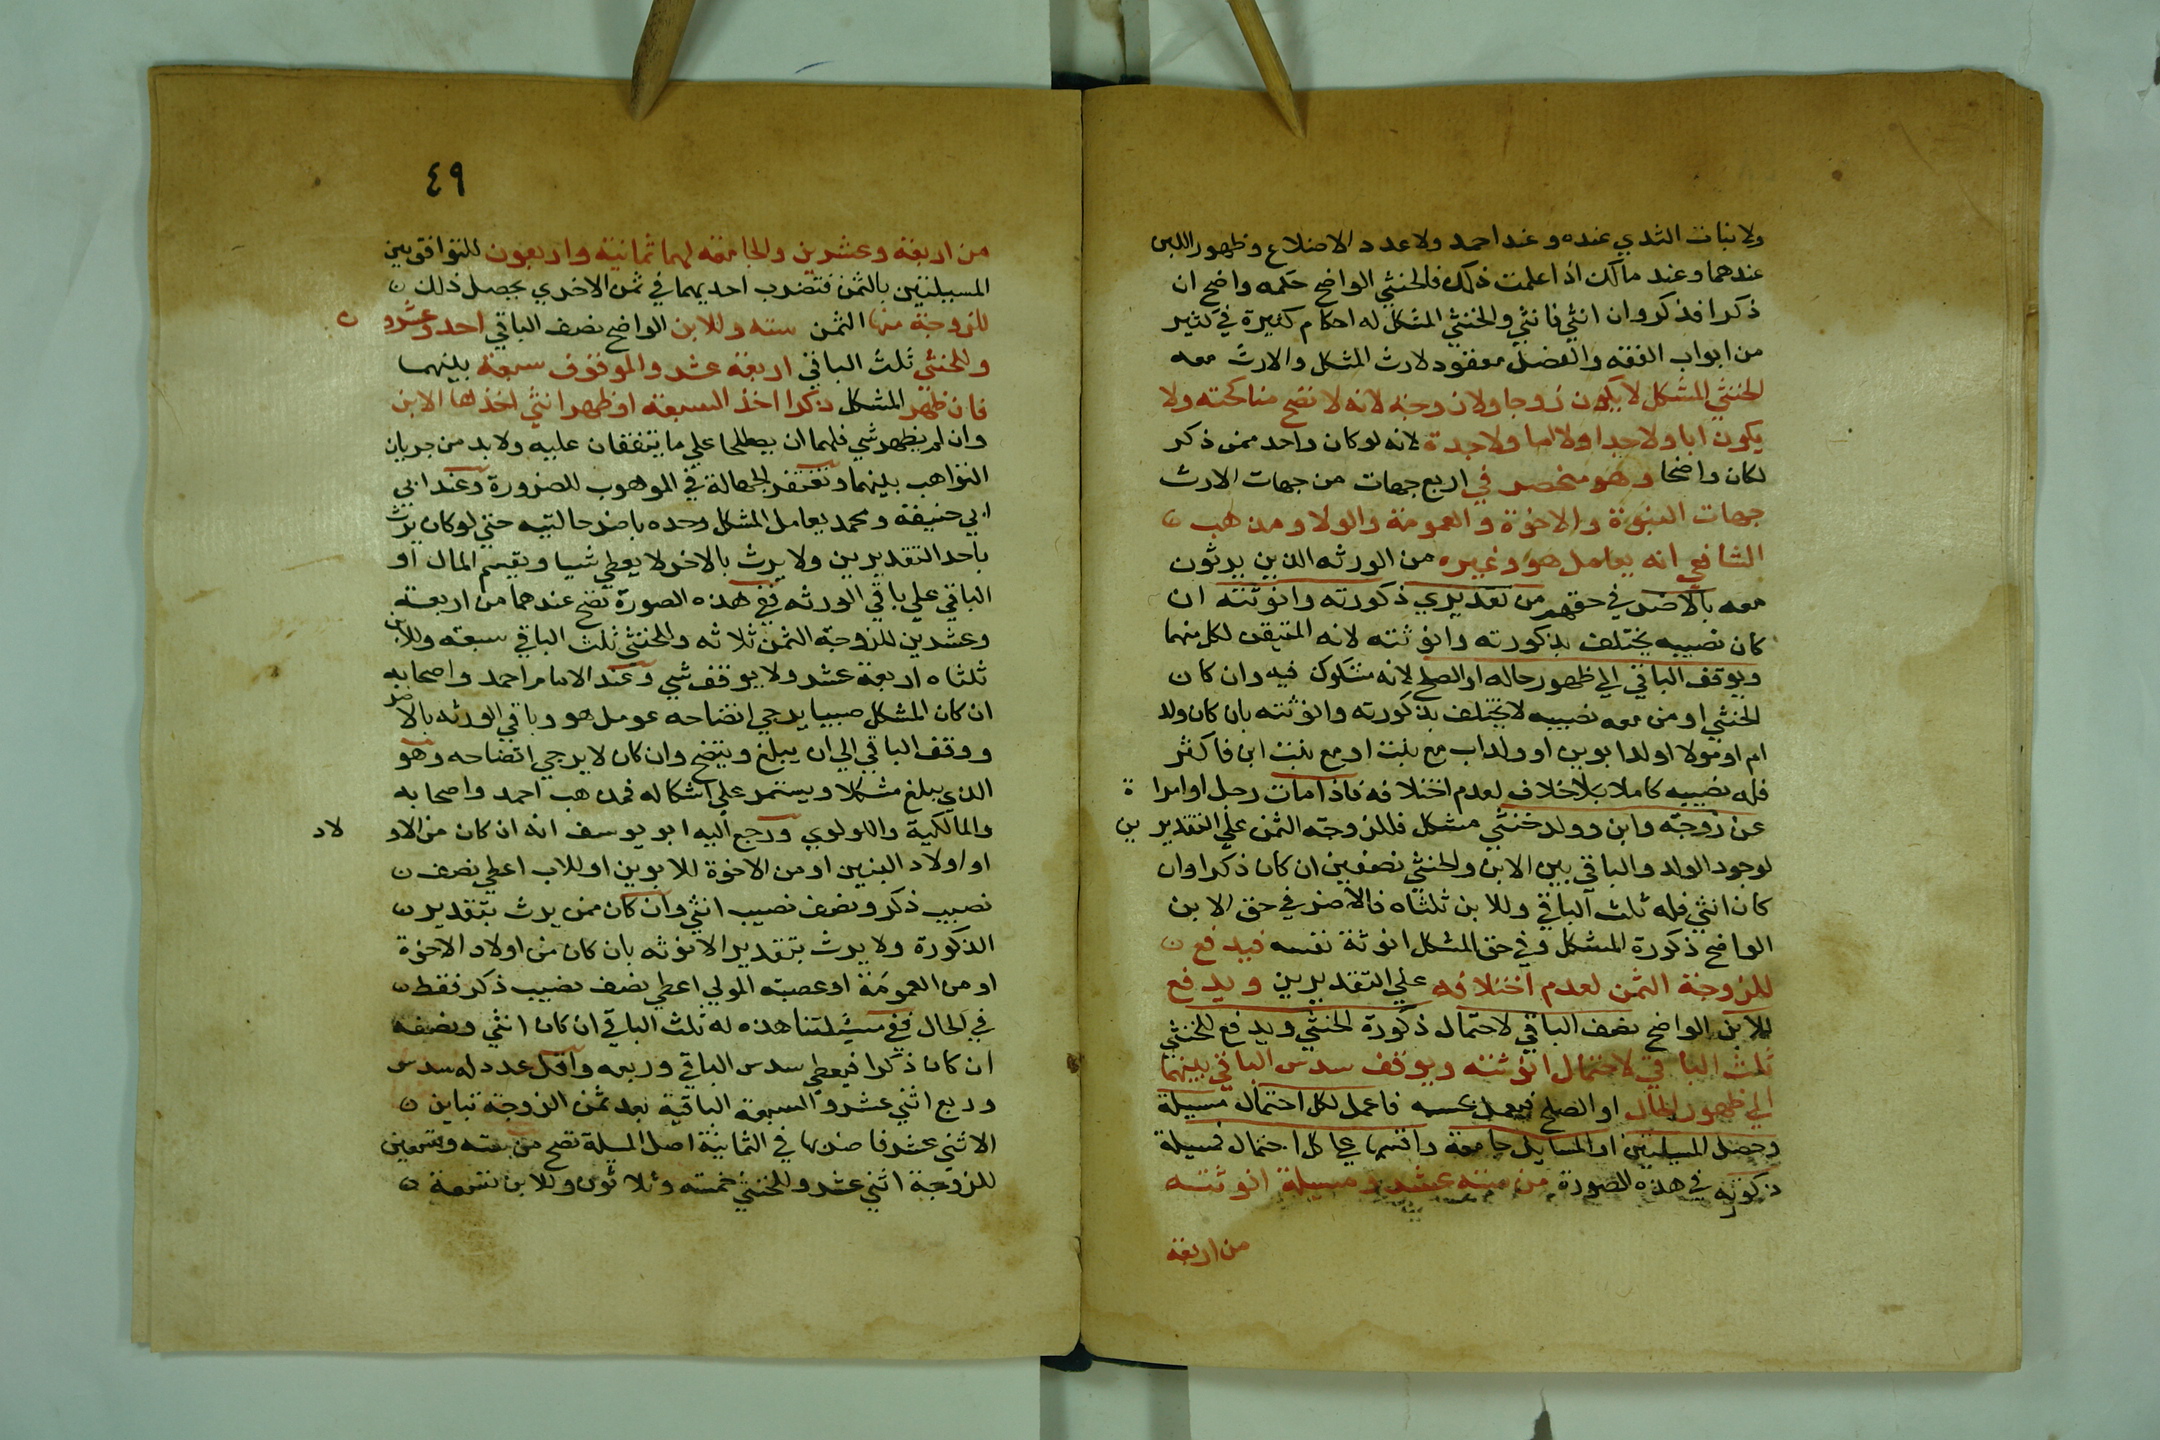 ولا نبات الثدي عنده وعند احمد ولا عدد الاضلاع وظهور اللبن
عندهما وعند مالك اذا علمت ذلك فالخنثي الواضح حكمه واضح ان
ذكرا فذكر وان انثي فانثي والخنثي المشكل له احكام كثيرة في كثير
من ابواب الفقه والفصل معقود لارث المشكل والارث معه
الخنثي المشكل لا يكون زوجا ولا زوجة لانه لا تصح مناكحته ولا
يكون ابا ولا جدا ولا اما ولا جدة لانه لو كان واحد ممن ذكر
لكان واضحا وهو منحصر في اربع جهات من جهات الارث
جهات البنوة والاخوة والعمومة والولا ومذهب
الشافعي انه يعامل هو وغيره من الورثه الذين يرثون
معه بالاضر في حقهم من تقديري ذكورته وانوثته ان
كان نصيبه يختلف بذكورته وانوثته لانه المتيقن لكل منهما
ويوقف الباقي الي ظهور حاله او الصلح لانه مشكوك فيه وان كان
الخنثي او من معه نصيبه لا يختلف بذكورته وانوثته بان كان ولد
ام او مولا او لد ابوين او ولد اب مع بنت او مع بنت ابن فاكثر
فله نصيبه كاملا بلا خلاف لعدم اختلافه فاذا مات رجل او امراة
عن زوجة وابن وولد خنثي مشكل فللزوجة الثمن علي التقديرين
لوجود الولد والباقي بين الابن والخنثي نصفين ان كان ذكرا وان
كان انثي فله ثلث الباقي وللابن ثلثاه فالاضر في حق الابن
الواضح ذكورة المشكل وفي حق المشكل انوثة نفسه فيدفع
للزوجة الثمن لعدم اختلافه علي التقديرين ويدفع
للابن الواضح نصف الباقي لاحتمال ذكورة الخنثي ويدفع للخنثي
ثلث الباقي لاحتمال انوثته ويوقف سدس الباقي بينهما
الي ظهور الحال او الصلح فاعمل لكل احتمال مسيلة
وحصل المسيلتين او المسايل جامعة واقسمها علي كل احتمال فمسيلة
ذكورته في هذه الصورة من ستة عشر ومسيلة انوثته
من اربعة
٤٩
من اربعة وعشرين والجامعة لهما ثمانية واربعون للتوافق بين
المسيلتين بالثمن فتضرب احديهما في ثمن الاخري يحصل ذلك
للزوجة منها الثمن سته وللابن الواضح نصف الباقي احد وعشرون
وللخنثي ثلث الباقي اربعة عشر والموقوف سبعة بينهما
فان ظهر المشكل ذكرا اخذ السبعة او ظهر انثي اخذها الابن
وان لم يظهر شي فلهما ان يصطلحا علي ما يتفقان عليه ولا بد من جريان
التواهب بينهما وتغتفر الجهالة في الموهوب للضرورة وعند ابي
ابي حنيفة ومحمد يعامل المشكل وحده باضر حالتيه حتي لو كان يرث
باحد التقديرين ولا يرث بالاخر لا يعطي شيا ويقسم المال او
الباقي علي باقي الورثه ففي هذه الصورة تصح عندهما من اربعة
وعشرين للزوجة الثمن ثلاثه وللخنثي ثلث الباقي سبعة وللابن
ثلثاه اربعة عشر ولا يوقف شي وعند الامام احمد واصحابه
ان كان المشكل صبيا يرجي اتضاحه عومل هو وباقي الورثه بالاضر
ووقف الباقي الي ان يبلغ ويتضح وان كان لا يرجي اتضاحه وهو
الذي يبلغ مشكلا ويستمر علي اشكاله فمذهب احمد واصحابه
والمالكية واللولوي ورجع اليه ابو يوسف انه ان كان من الاولاد
او اولاد البنين او من الاخوة للابوين او للاب اعطي نصف
نصيب ذكر ونصف نصيب انثي وان كان ممن يرث بتقدير
الذكورة ولا يرث بتقدير الانوثه بان كان من اولاد الاخوة
او من العمومة او عصبة المولي اعطي نصف نصيب ذكر فقط
في الحال ففي مسيلتنا هذه له ثلث الباقي ان كان انثي ونصفه
ان كان ذكرا فيعطي سدس الباقي وربعه واقل عدد له سدس
وربع اثني عشر والسبعة الباقية بعد ثمن الزوجة تباين
الاثني عشر فاضربها في الثمانية اصل المسيلة تصح من سته وتسعين
للزوجة اثني عشر وللخنثي خمسه وثلاثون وللابن تسعة